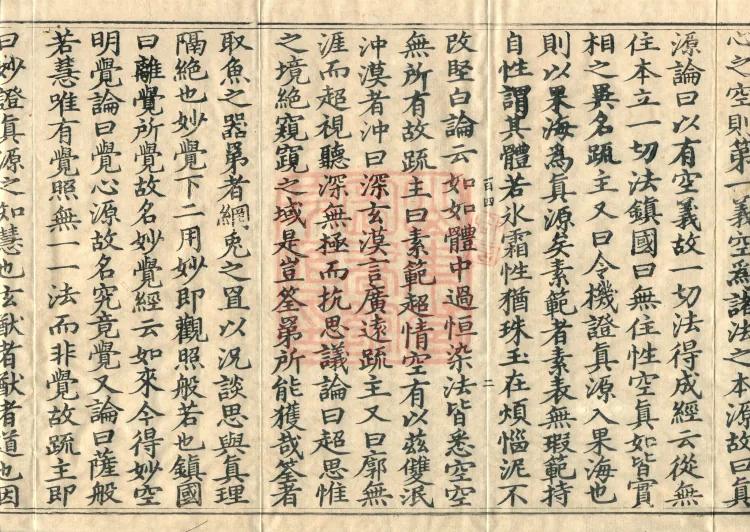 心之空則第一義空為諸法之本源故曰真
源論曰以有空義故一切法得成經云從無
住本立一切法鎮國曰無住性空真如皆實
相之異名䟽主又曰令機證真源入果海也
則以果海為真源矣素範者素表無瑕範持
自性謂其體若氷霜性猶珠玉在煩惱泥不
改堅白論云如如體中過恒染法皆悉空空
無所有故䟽主曰素範超情空有以兹雙泯
沖漠者沖曰深玄漠言廣遠䟽主又曰廓無
涯而超視聽深無極而抗思議論曰超思惟
之境絶窺窬之域是豈筌苐所能獲哉筌者
取魚之器苐者綱兎之罝以况談思與真理
隔絶也妙覺下二用妙即觀照般若也鎮國
曰離覺所覺故名妙覺經云如來今得妙空
明覺論曰覺心源故名究竟覺又論曰薩般
若慧唯有覺照無一一法而非覺故䟽主即
曰妙證真源之知慧也玄猷者猷者道也因
百四
二